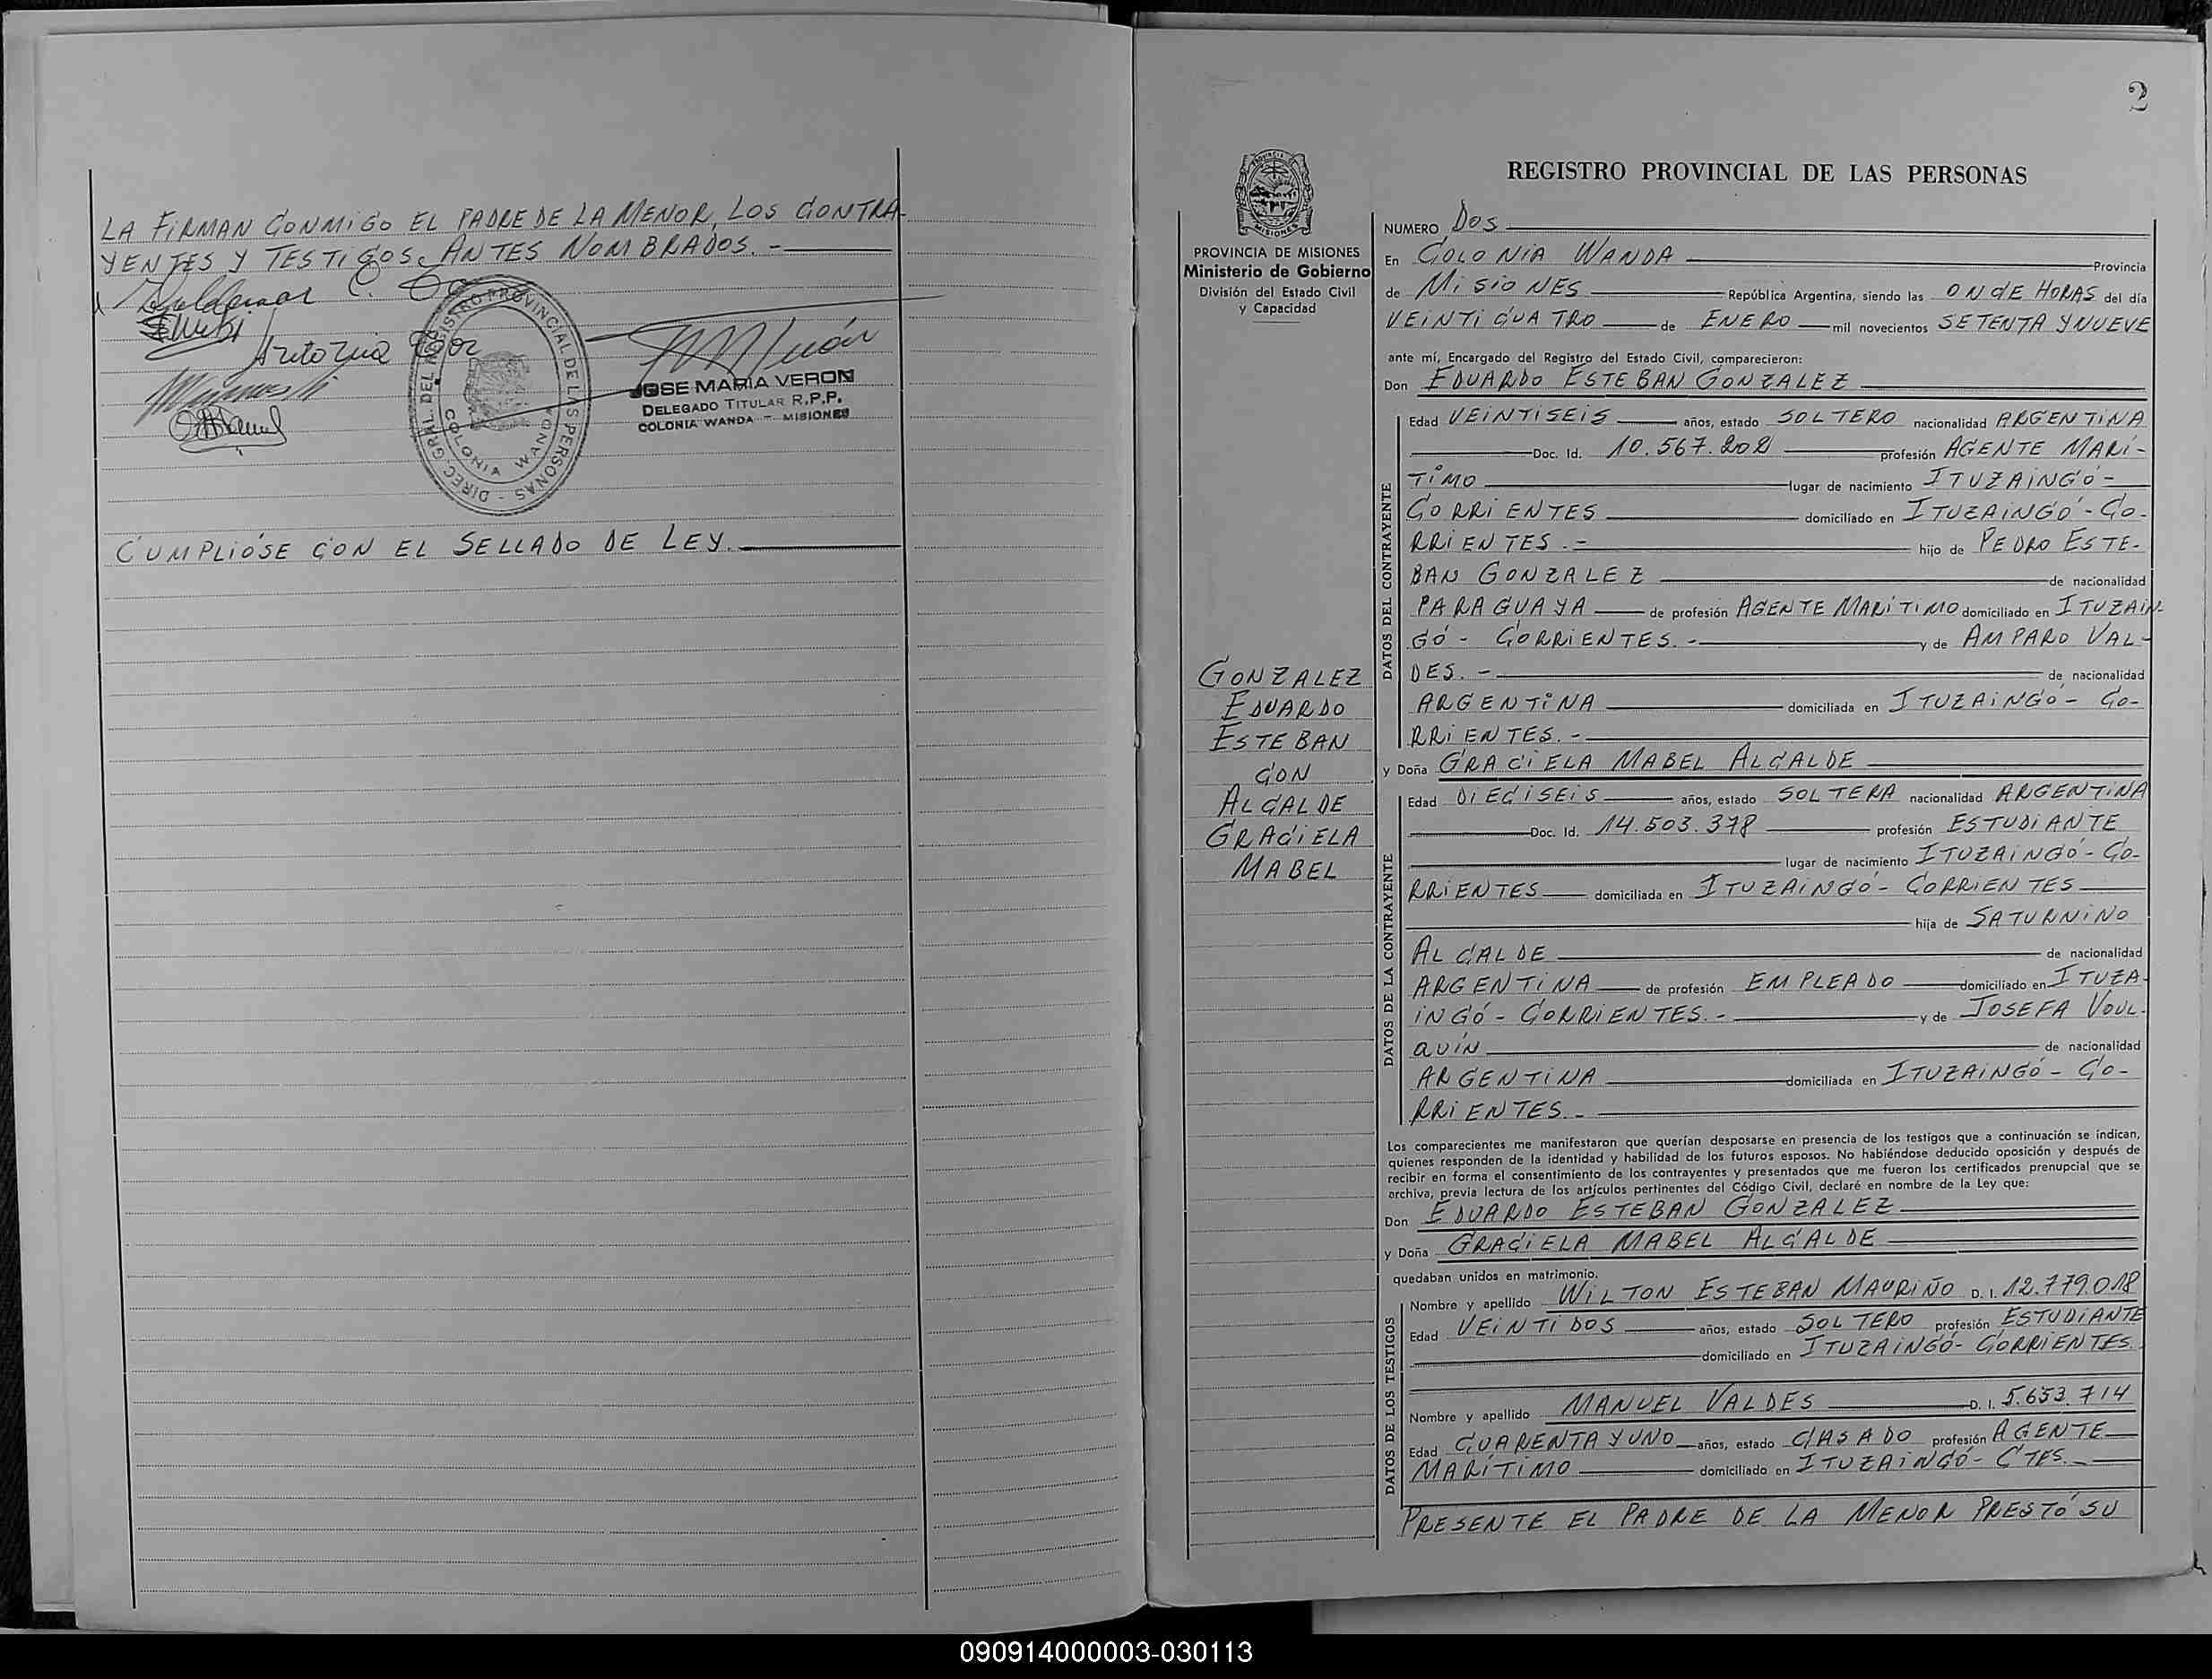 LA FIRMAN CONMIGO EL PADRE DE LA MENOR, LOS CONTRA-
YENTES Y TESTIGOS ANTES NOMBRADOS.-
DIREC. GRAL. DEL REGISTRO PROVINCIAL DE LAS PERSONAS
COLONIA WANDA
JOSE MARIA VERON
DELEGADO TITULAR R.P.P.
COLONIA WANDA - MISIONES
CUMPLIÓSE CON EL SELLADO DE LEY.
2
REGISTRO PROVINCIAL DE LAS PERSONAS
PROVINCIA DE MISIONES
Ministerio de Gobierno
División del Estado Civil
y Capacidad
GONZALEZ
EDUARDO
ESTEBAN
CON
ALCALDE
GRACIELA
MABEL
NUMERO DOS
En COLONIA WANDA Provincia
de MISIONES República Argentina, siendo las ONCE HORAS del día
VEINTICUATRO de ENERO mil novecientos SETENTA Y NUEVE
ante mí, Encargado del Registro del Estado Civil, comparecieron:
Don EDUARDO ESTEBAN GONZALEZ
DATOS DEL CONTRAYENTE
Edad VEINTISEIS años, estado SOLTERO nacionalidad ARGENTINA
Doc. Id. 10.567.202 profesión AGENTE MARÍ-
TIMO lugar de nacimiento ITUZAINGÓ-
CORRIENTES domiciliado en ITUZAINGÓ-CO-
RRIENTES.- hijo de PEDRO ESTE-
BAN GONZALEZ de nacionalidad
PARAGUAYA de profesión AGENTE MARÍTIMO domiciliado en ITUZAIN-
GÓ - CORRIENTES.- y de AMPARO VAL-
DES.- de nacionalidad
ARGENTINA domiciliada en ITUZAINGÓ- CO-
RRIENTES.-
y Doña GRACIELA MABEL ALCALDE
DATOS DE LA CONTRAYENTE
Edad DIECISEIS años, estado SOLTERA nacionalidad ARGENTINA
Doc. Id. 14.503.378 profesión ESTUDIANTE
lugar de nacimiento ITUZAINGÓ-CO-
RRIENTES domiciliada en ITUZAINGÓ- CORRIENTES
hija de SATURNINO
ALCALDE de nacionalidad
ARGENTINA de profesión EMPLEADO domiciliado en ITUZA-
INGÓ - CORRIENTES.- y de JOSEFA VOUL-
QUÍN de nacionalidad
ARGENTINA domiciliada en ITUZAINGÓ - CO-
RRIENTES.-
Los comparecientes me manifestaron que querían desposarse en presencia de los testigos que a continuación se indican,
quienes responden de la identidad y habilidad de los futuros esposos. No habiéndose deducido oposición y después de
recibir en forma el consentimiento de los contrayentes y presentados que me fueron los certificados prenupcial que se
archiva, previa lectura de los artículos pertinentes del Código Civil, declaré en nombre de la Ley que:
Don EDUARDO ESTEBAN GONZALEZ
y Doña GRACIELA MABEL ALCALDE
quedaban unidos en matrimonio.
DATOS DE LOS TESTIGOS
Nombre y apellido WILTON ESTEBAN MAURIÑO D. I. 12.779.018
Edad VEINTIDOS años, estado SOLTERO profesión ESTUDIANTE
domiciliado en ITUZAINGÓ- CORRIENTES.
Nombre y apellido MANUEL VALDES D. I. 5.653.714
Edad CUARENTA Y UNO años, estado CASADO profesión AGENTE
MARÍTIMO domiciliado en ITUZAINGÓ- CTES.-
PRESENTE EL PADRE DE LA MENOR PRESTÓ SU
090914000003-030113